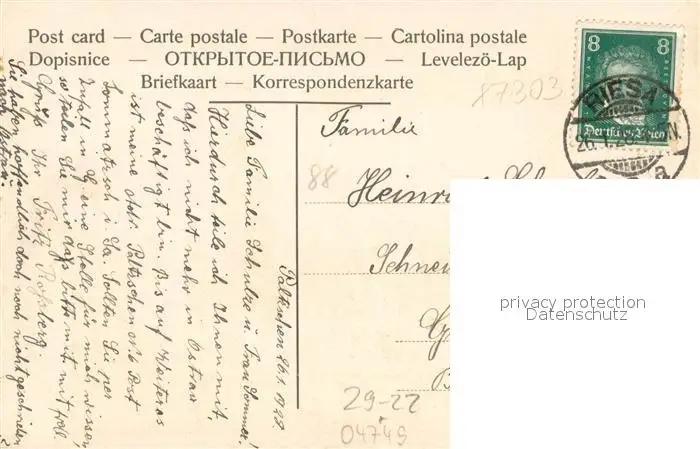 Post card — Carte postale — Postkarte — Cartolina postale
Dopisnice — ОТКРЫТОЕ-ПИСЬМО — Levelezö-Lap
Briefkaart — Korrespondenzkarte
8 8
Deutsches Reich
RIESA
87303
88
Familie
Schnei
29-22
04749
privacy protection
Datenschutz
Paltzschen 26.1.1929
Liebe Familie Schulze u. Frau Sommer!
Hierdurch teile ich Ihnen mit,
daß ich nicht mehr in Ostrau
beschäftigt bin. Bis auf Weiteres
ist meine Adr. Paltzschen No 6 Post
Lommatzsch i. Sa. Sollten Sie per
Zufall in G. eine Stelle für mich wissen,
so teilen Sie mir das bitte mit.
Gruß Ihr Fritz Roßberg.
Sie haben hoffentlich doch noch nicht geschrieben
nach Ostrau.